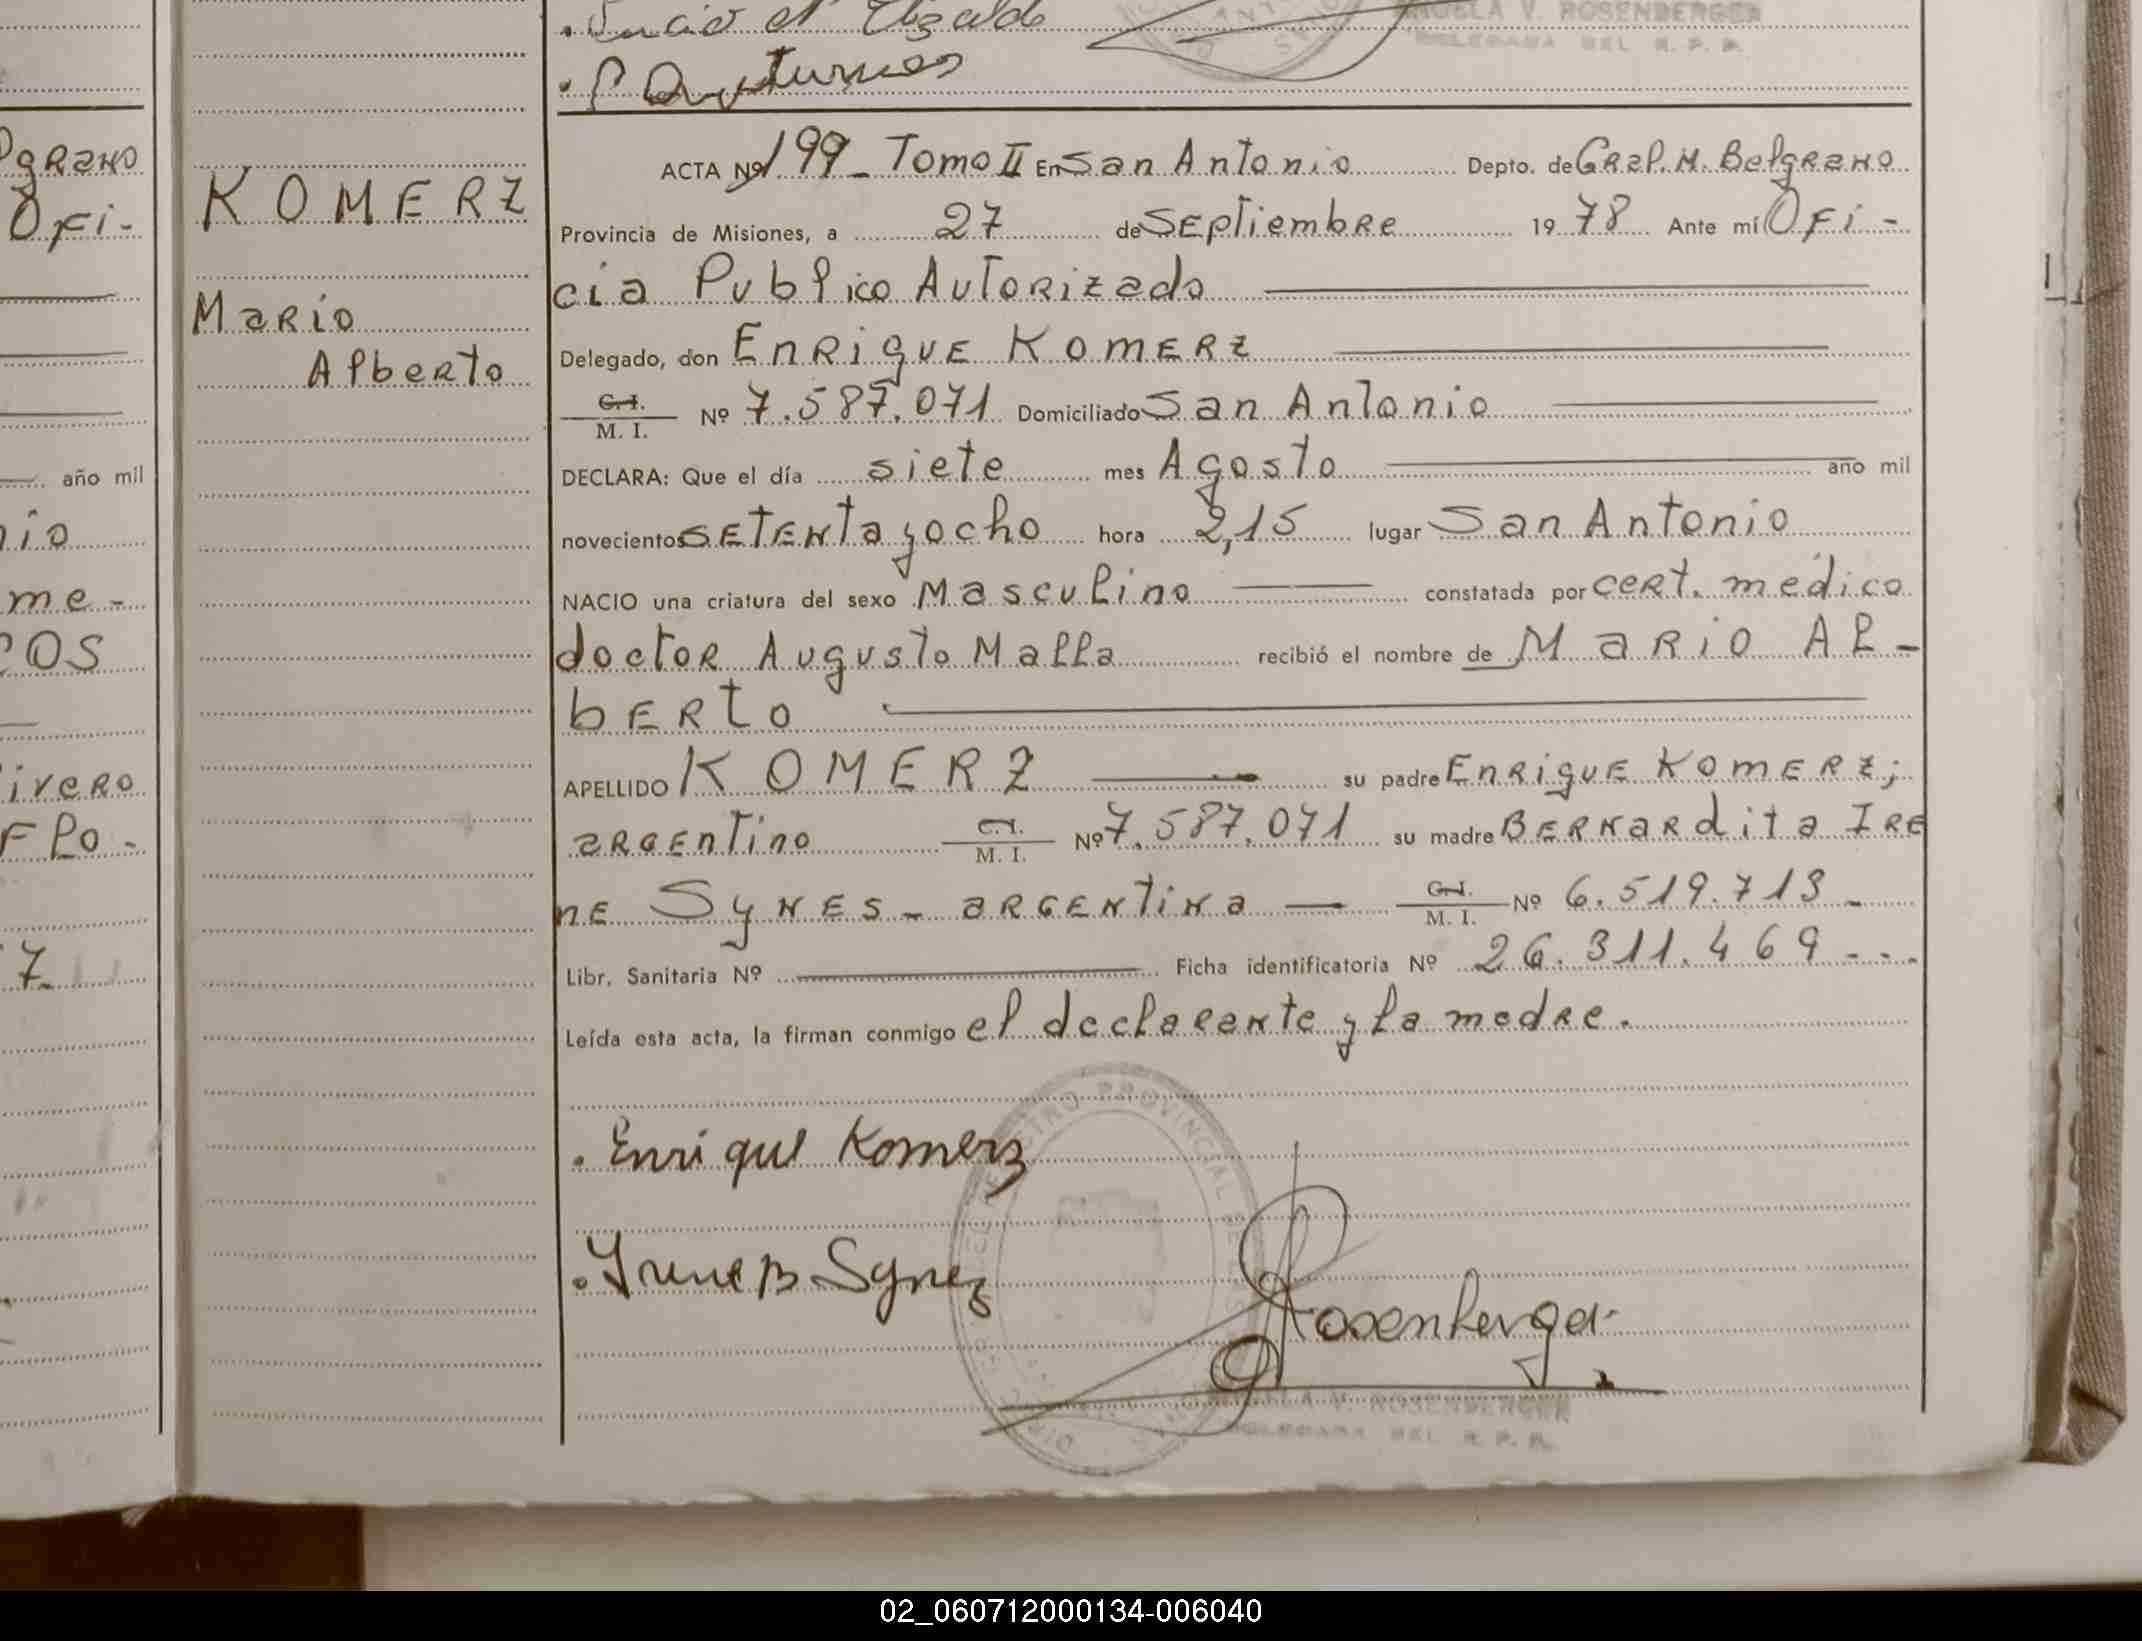 Lucio A. Elizalde
MANUELA V. ROSENBERGER
DELEGADA DEL R. P. P.
KOMERZ
Mario
Alberto
ACTA Nº 199 - Tomo II En San Antonio Depto. de Gral. M. Belgrano
Provincia de Misiones, a 27 de SEptiembRe 19 78 Ante mí Ofi-
cia Publico Autorizado
Delegado, don EnRiquE KomERz
C. I. / M. I. Nº 7.587.071 Domiciliado San Antonio
DECLARA: Que el día siete mes Agosto año mil
novecientos SETENTa y ocho hora 2,15 lugar San Antonio
NACIO una criatura del sexo Masculino constatada por cert. médico
doctor Augusto Malla recibió el nombre de MaRio AL-
bERto
APELLIDO KOMERZ su padre EnRiquE KomERz;
aRGEnTino C. I. / M. I. Nº 7.587.071 su madre BERNaRdita IRE
nE SyNES - aRGENTiNa C. I. / M. I. Nº 6.519.713 -
Libr. Sanitaria Nº Ficha identificatoria Nº 26.311.469 ---
Leída esta acta, la firman conmigo el declarante y la madre.
. Enrique Komerz
. Irene B Synez
Rosenberger
MANUELA V. ROSENBERGER
DELEGADA DEL R. P. P.
grano
Ofi-
año mil
nio
me-
COS
ivero
FLO-
7.
02_060712000134-006040